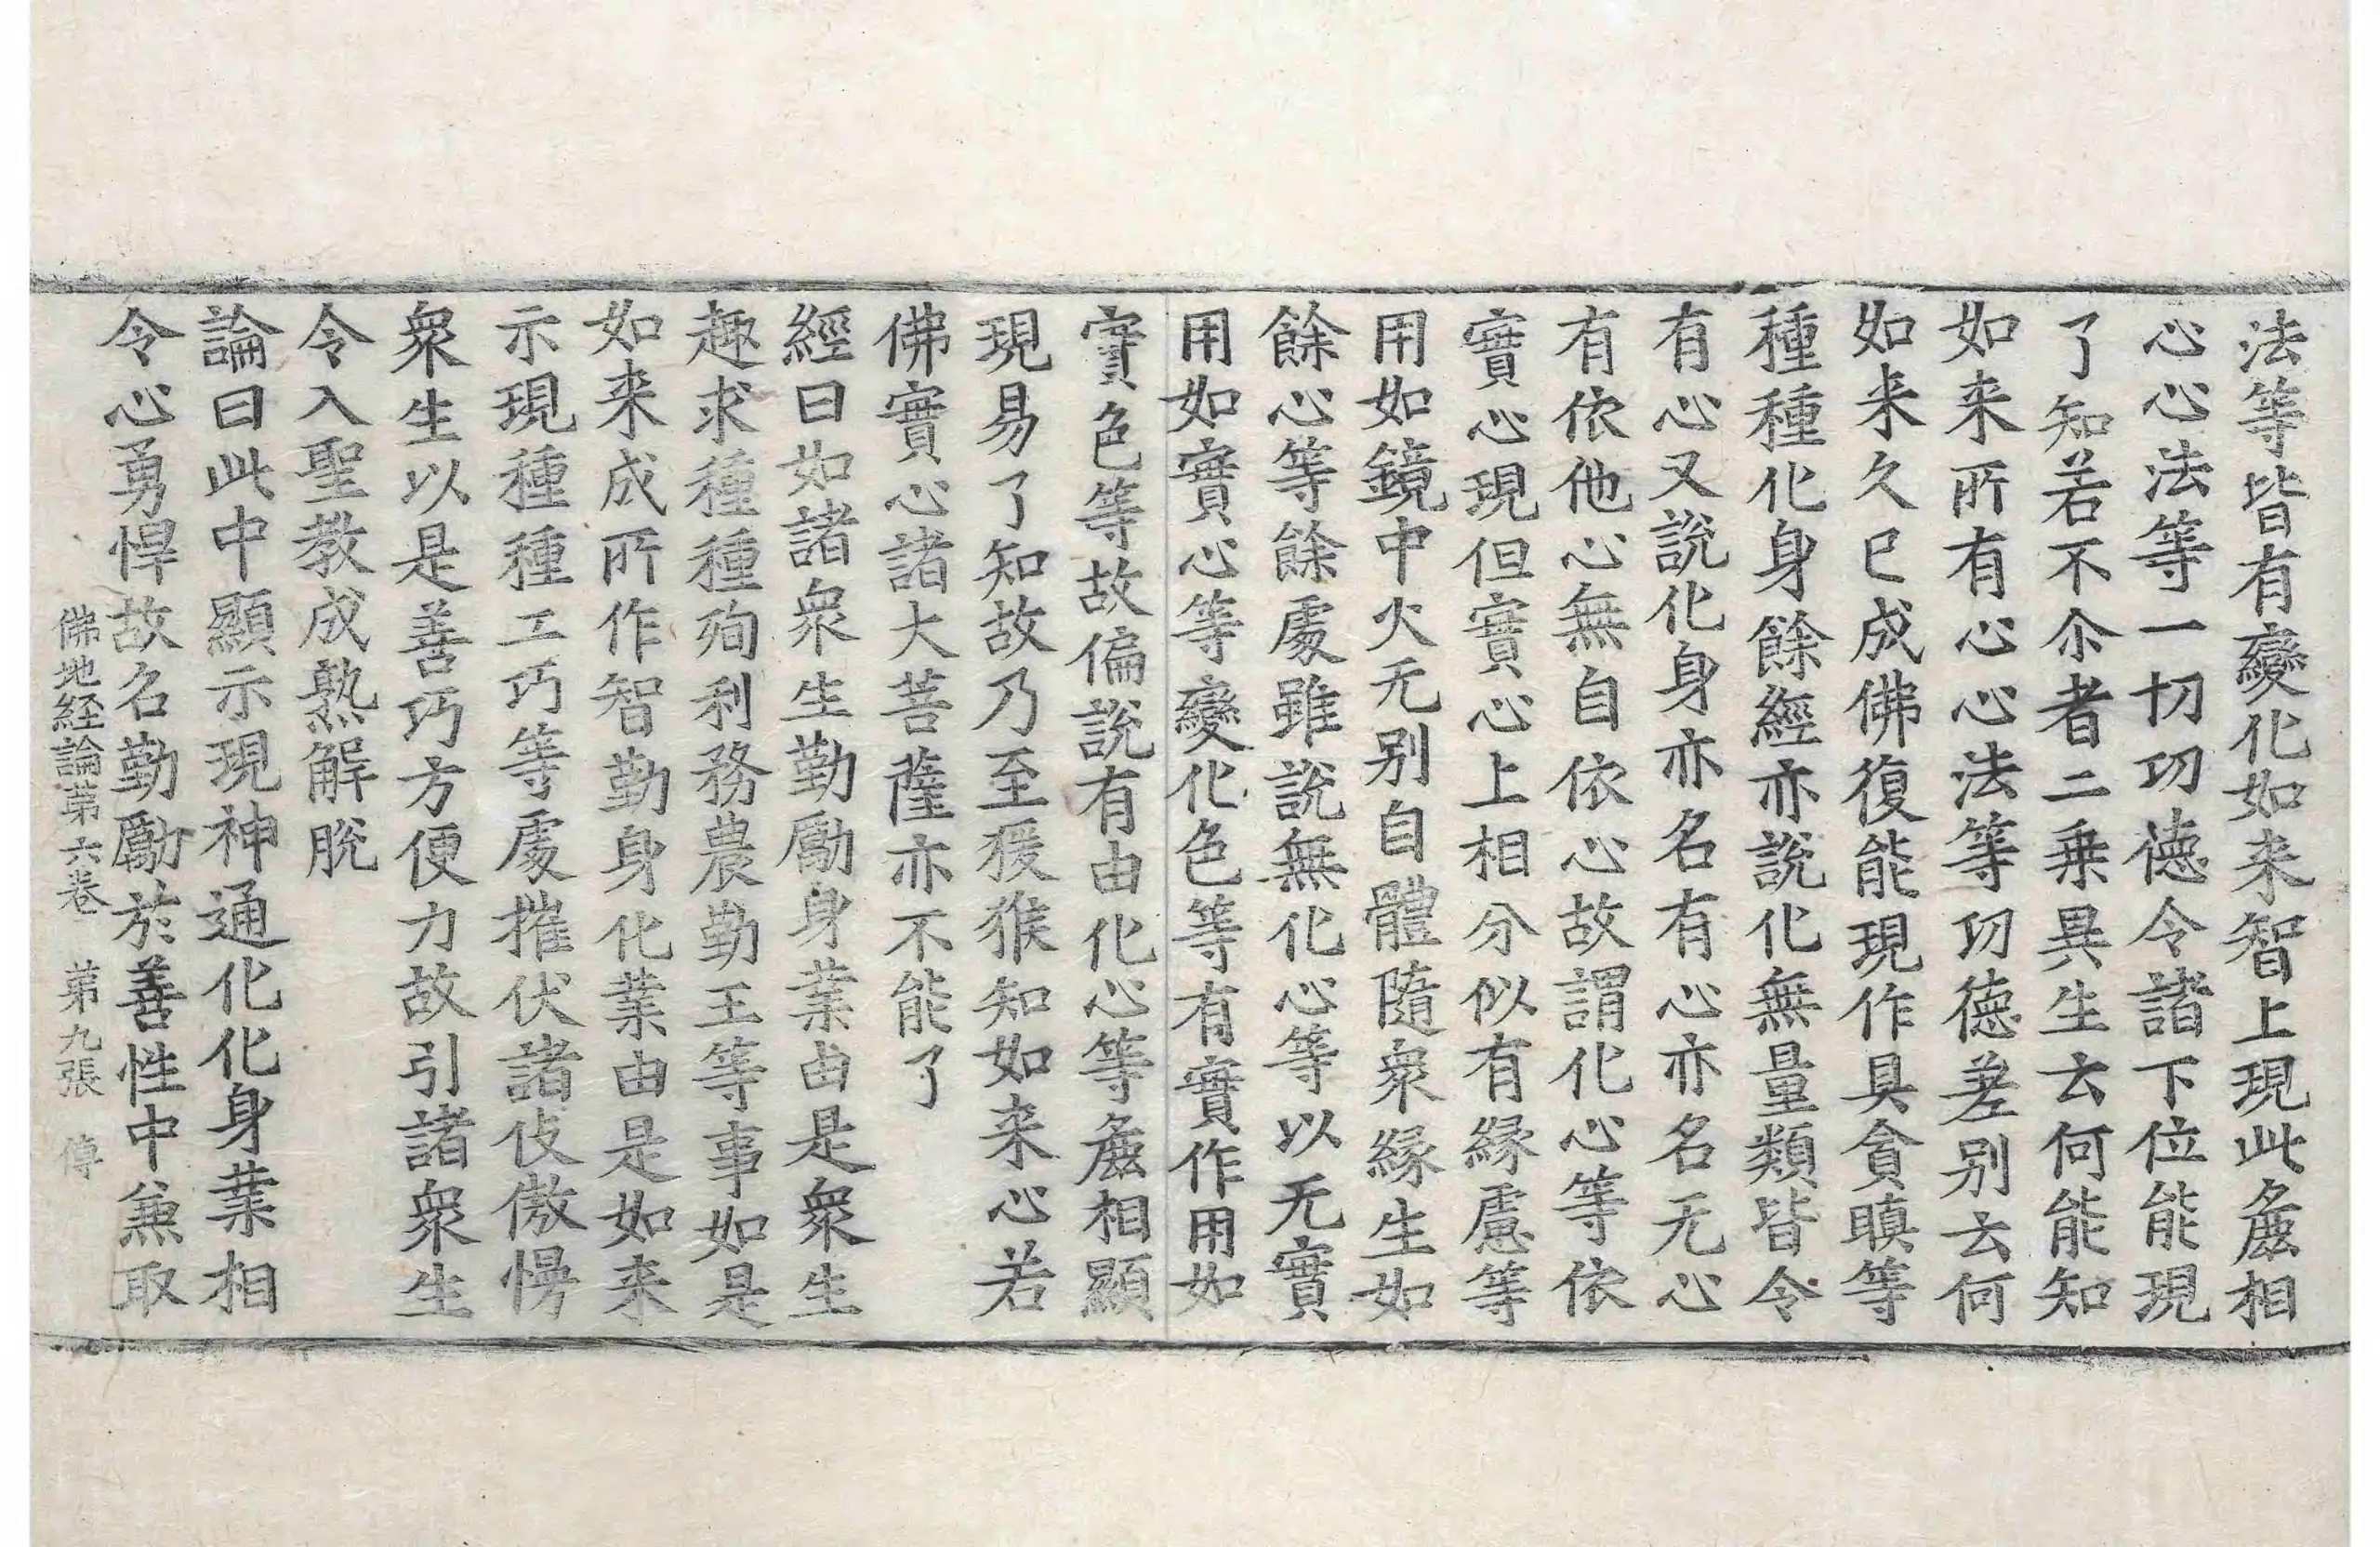 法等皆有變化如来智上現此麁相
心心法等一切功德令諸下位能現
了知若不尒者二乗異生云何能知
如来所有心心法等功德差別云何
如来久已成佛復能現作具貪瞋等
種種化身餘經亦説化無量類皆令
有心又説化身亦名有心亦名无心
有依他心無自依心故謂化心等依
實心現但實心上相分似有緣慮等
用如鏡中火无別自體隨衆緣生如
餘心等餘處雖説無化心等以无實
用如實心等變化色等有實作用如
實色等故偏説有由化心等麁相顯
現易了知故乃至猨猴知如来心若
佛實心諸大菩薩亦不能了
經曰如諸衆生勤勵身業由是衆生
趣求種種殉利務農勤王等事如是
如来成所作智勤身化業由是如来
示現種種工巧等處摧伏諸伎傲慢
衆生以是善巧方便力故引諸衆生
令入聖教成熟解脫
論曰此中顯示現神通化化身業相
令心勇悍故名勤勵於善性中兼取
佛地経論第六卷　第九張　傳